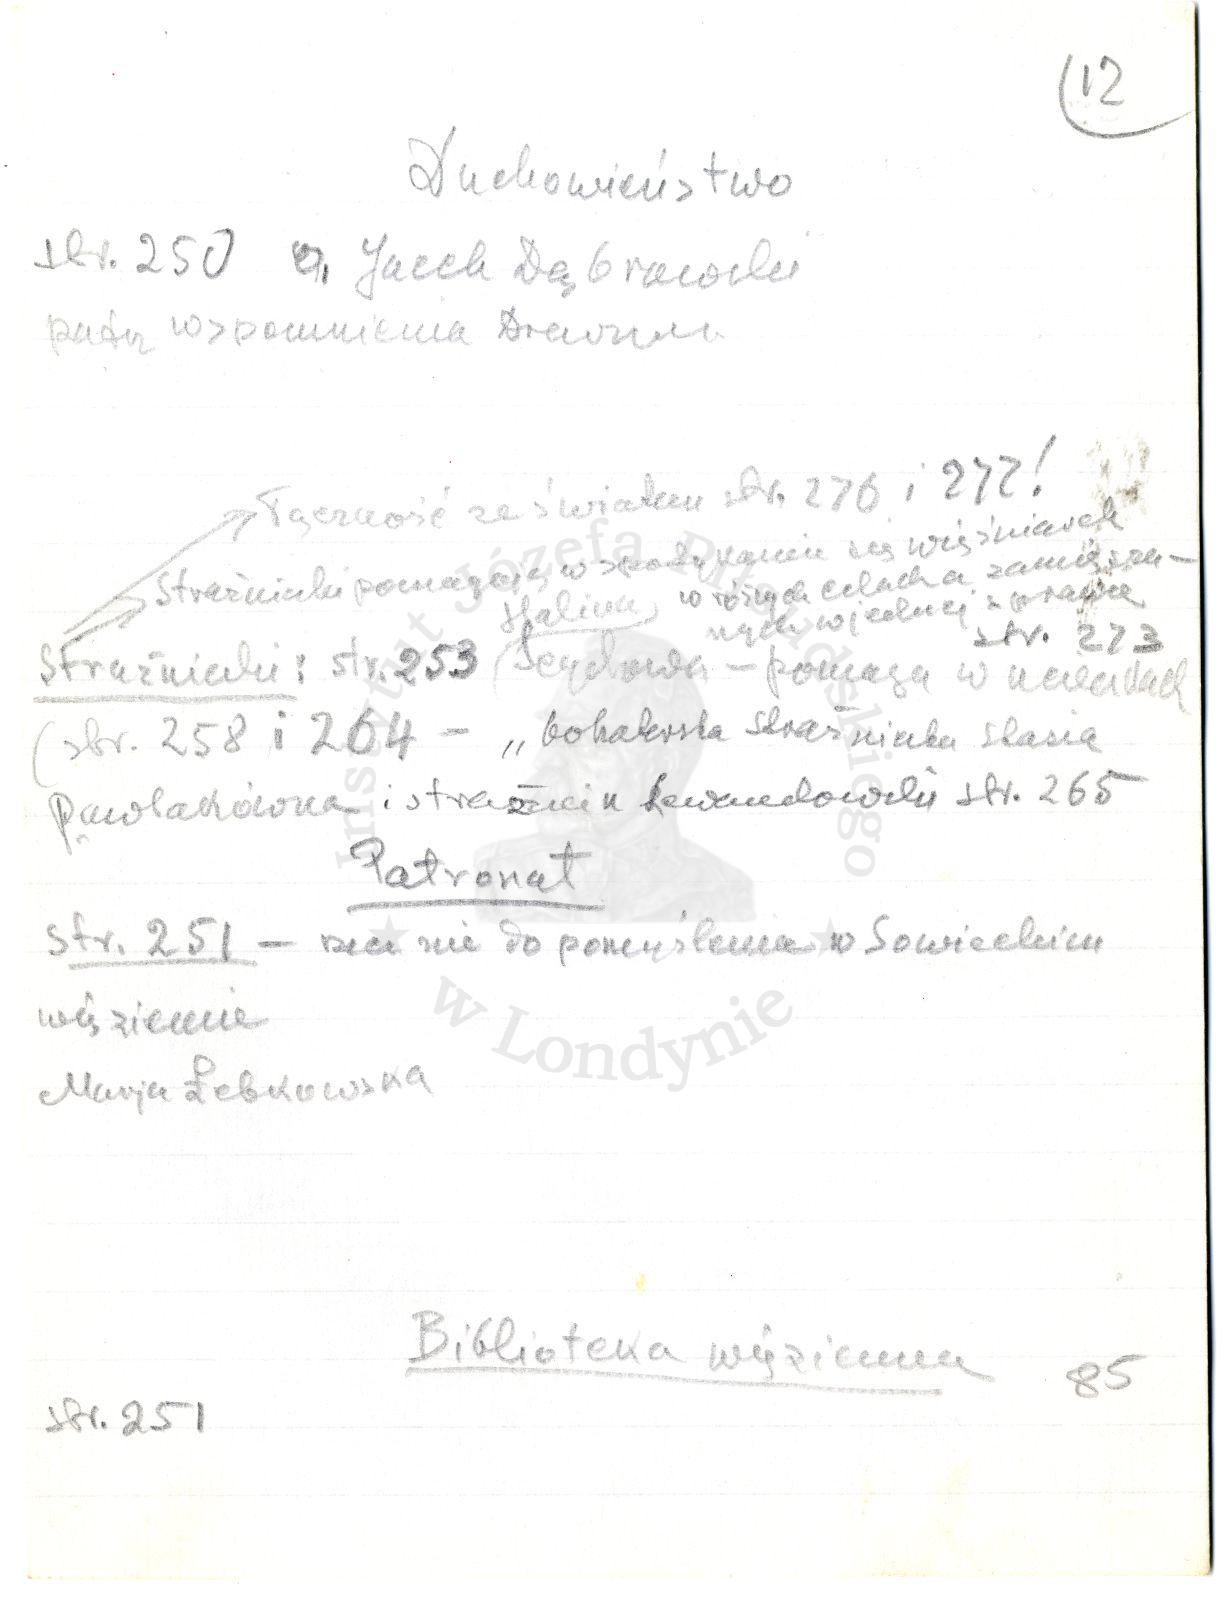 12
Duchowieństwo
str. 250 o. Jacek Dąbrowski
patrz wspomnienia
Łączność ze światem str. 276 i 277!
Strażniczki pomagają w spotykaniu się więźniarek
w różnych celach a zamiesza-
nych w jednej sprawie
str. 273
Halina
Strażniczki: str. 253 (- pomaga w ucieczkach
(str. 258 i 264 - „bohaterska strażniczka Stasia
i strażnik Lewandowski str. 265
Patronat
str. 251 - rzecz nie do pomyślenia w Sowieckim
więzieniu
Marja Łebkowska
Biblioteka więzienna 85
str. 251
Instytut Józefa Piłsudskiego
w Londynie